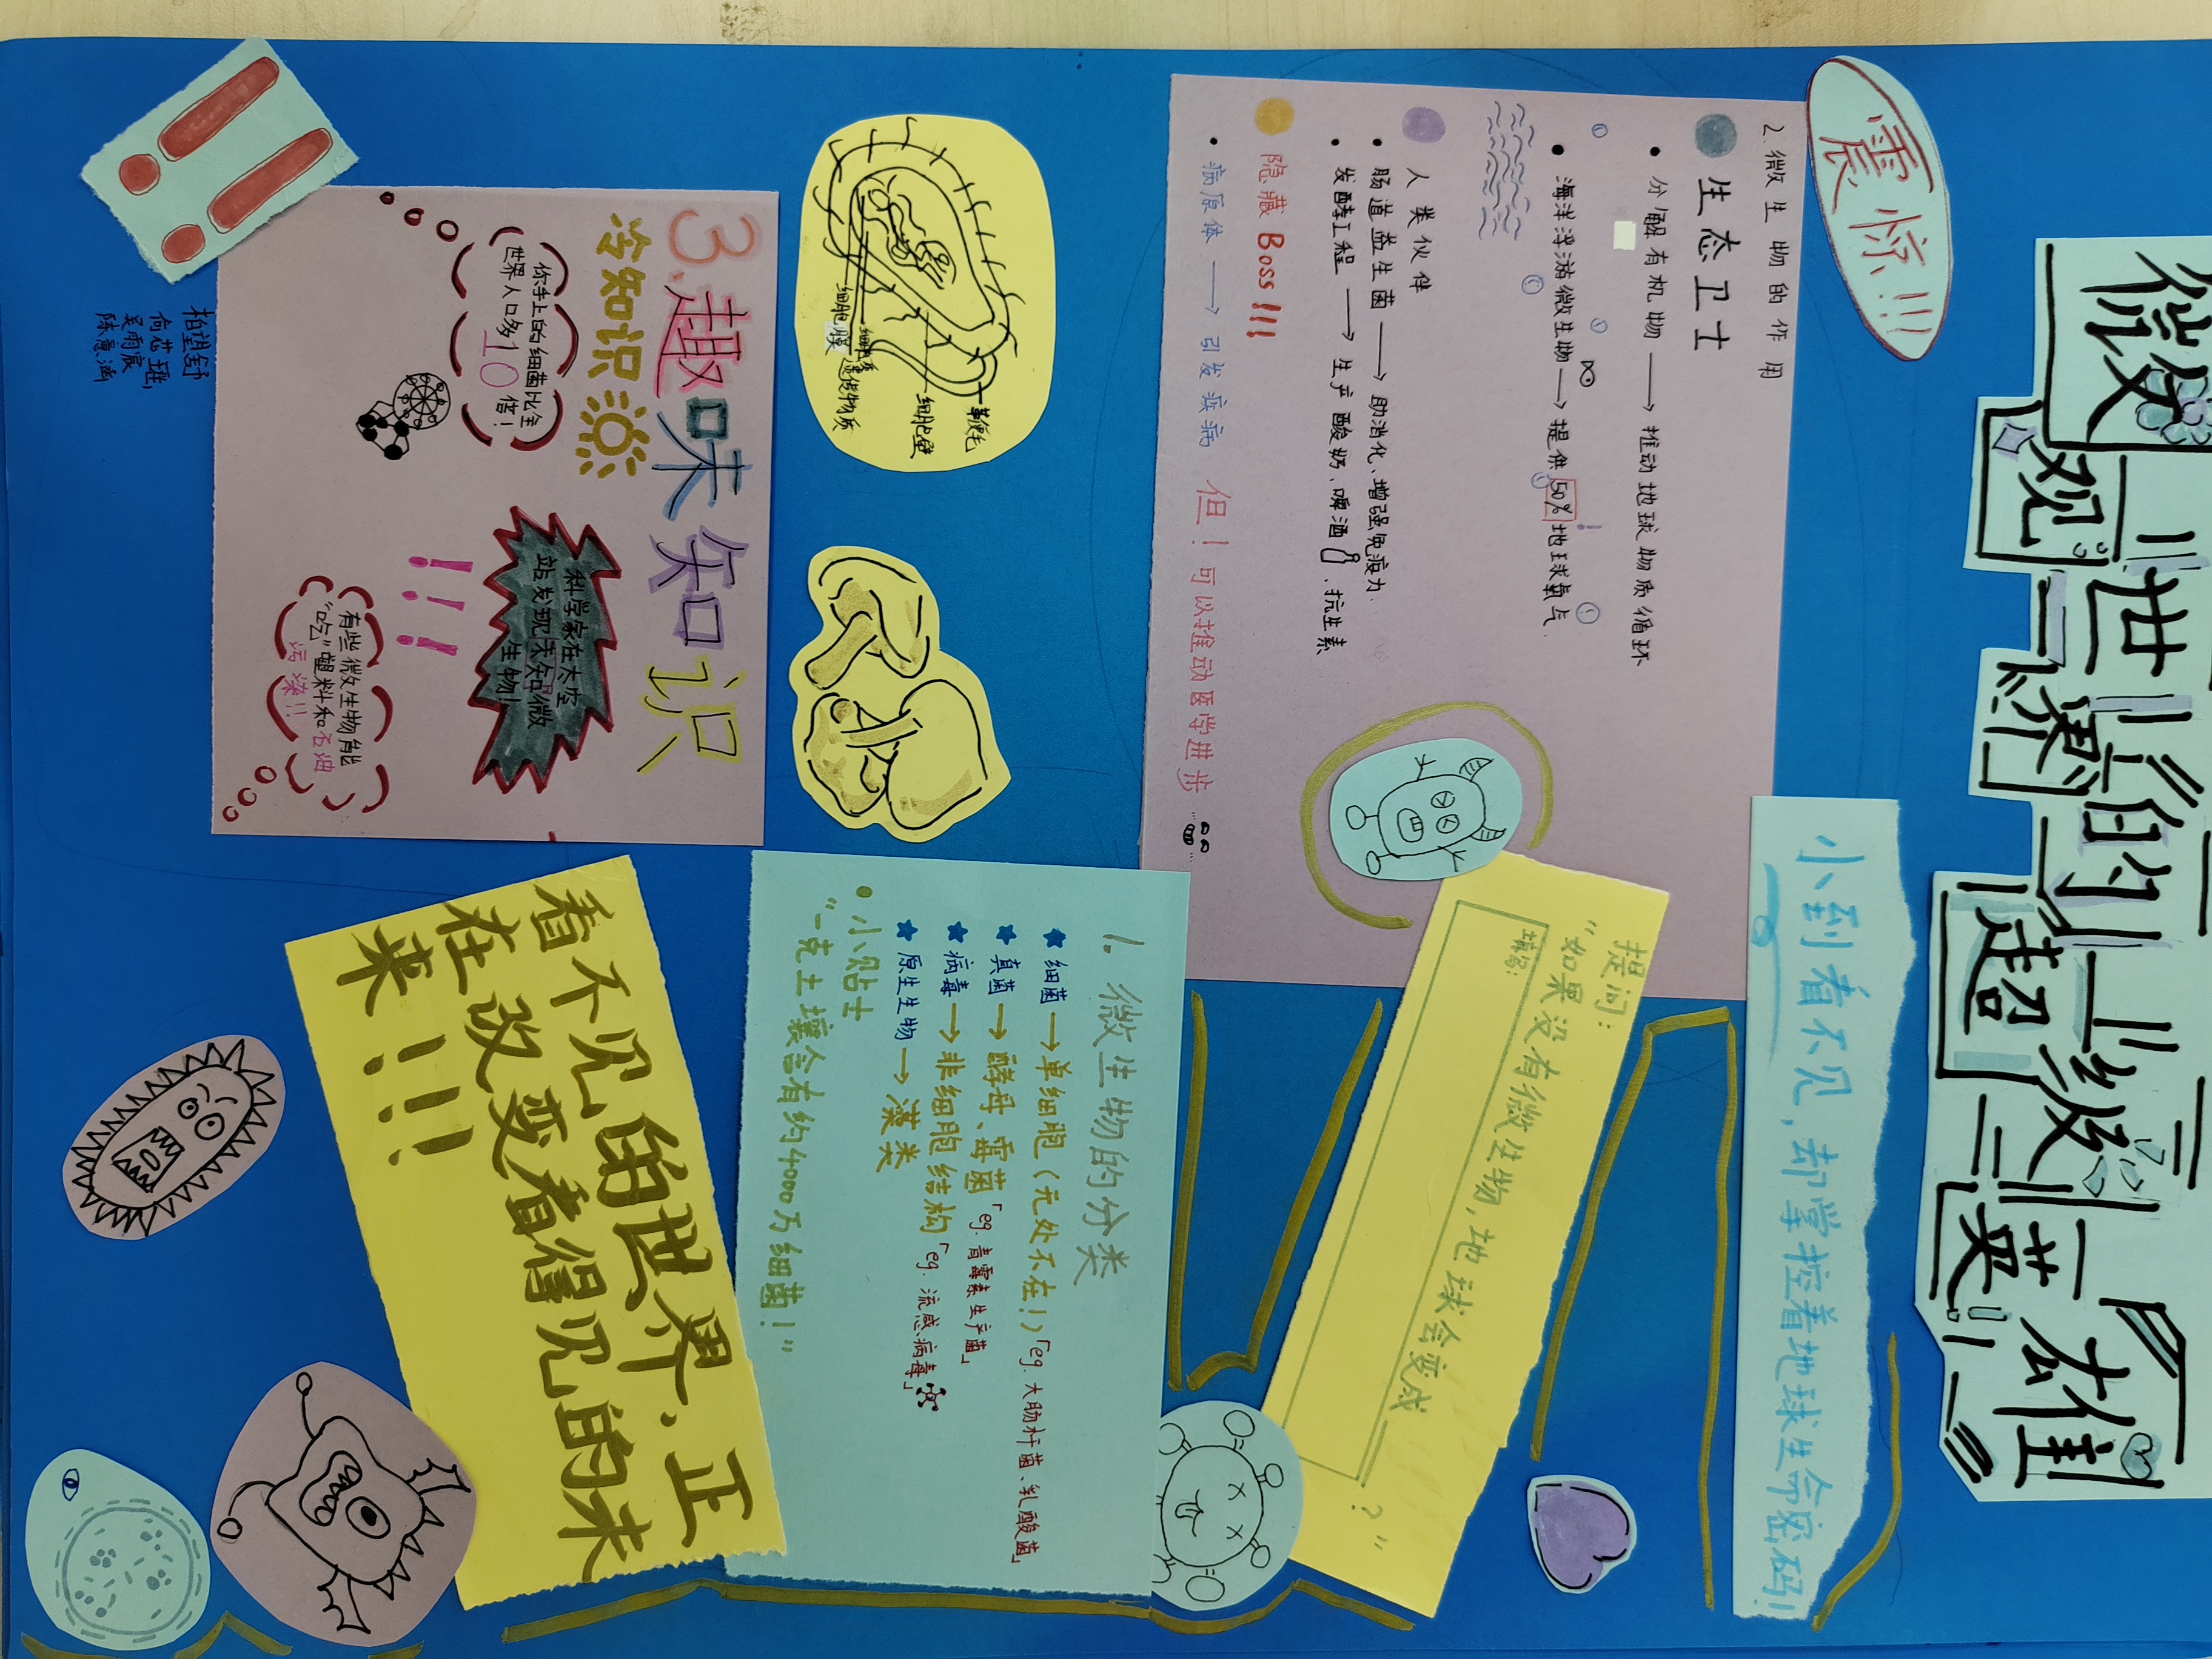 微观世界的超级英雄
震惊!!!
小到看不见,却掌控着地球生命密码!
2.微生物的作用
生态卫士
• 分解有机物 → 推动地球物质循环
• 海洋浮游微生物 → 提供50%地球氧气.
人类伙伴
• 肠道益生菌 → 助消化、增强免疫力.
• 发酵工程 → 生产酸奶、啤酒、抗生素
隐藏Boss!!!
• 病原体 → 引发疾病 但!可以推动医学进步…
提问:
“如果没有微生物,地球会变成
填写:
?”
1.微生物的分类
★细菌→单细胞(无处不在!)「eg.大肠杆菌、乳酸菌」
★真菌→酵母、霉菌「eg.青霉素生产菌」
★病毒→非细胞结构「eg.流感病毒」
★原生生物→藻类
• 小贴士
“一克土壤含有约4000万细菌!”
鞭毛
细胞壁
细胞质
遗传物质
细胞膜
3.趣味知识
冷知识
你手上的细菌比全
世界人口多10倍!
科学家在太空
站发现未知微
生物!
!!!
有些微生物能
“吃”塑料和石油
污染!!
看不见的世界,正
在改变看得见的未
来!!!
!!
吴雨宸